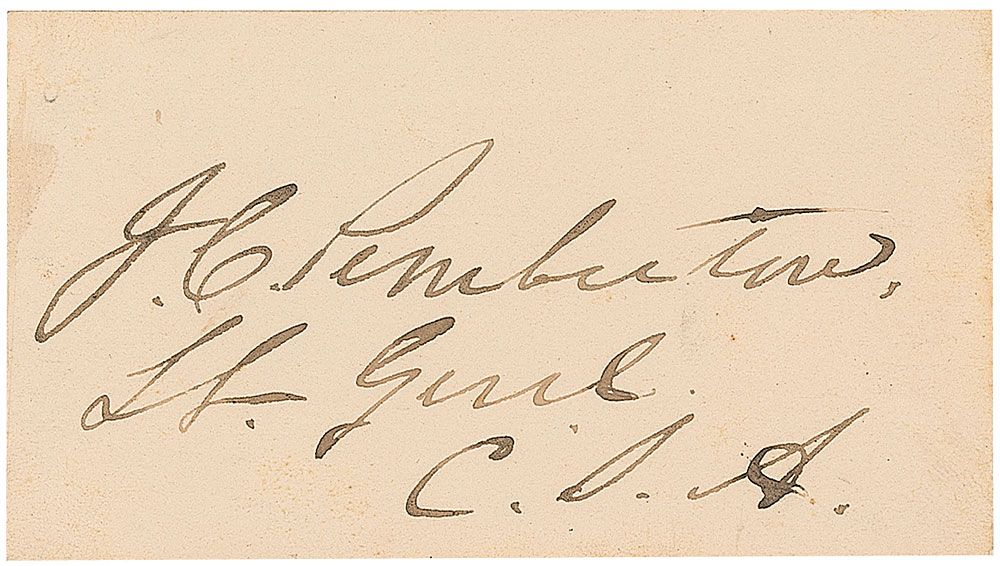 J. C. Pemberton,
Lt. Genl.
C. S. A.